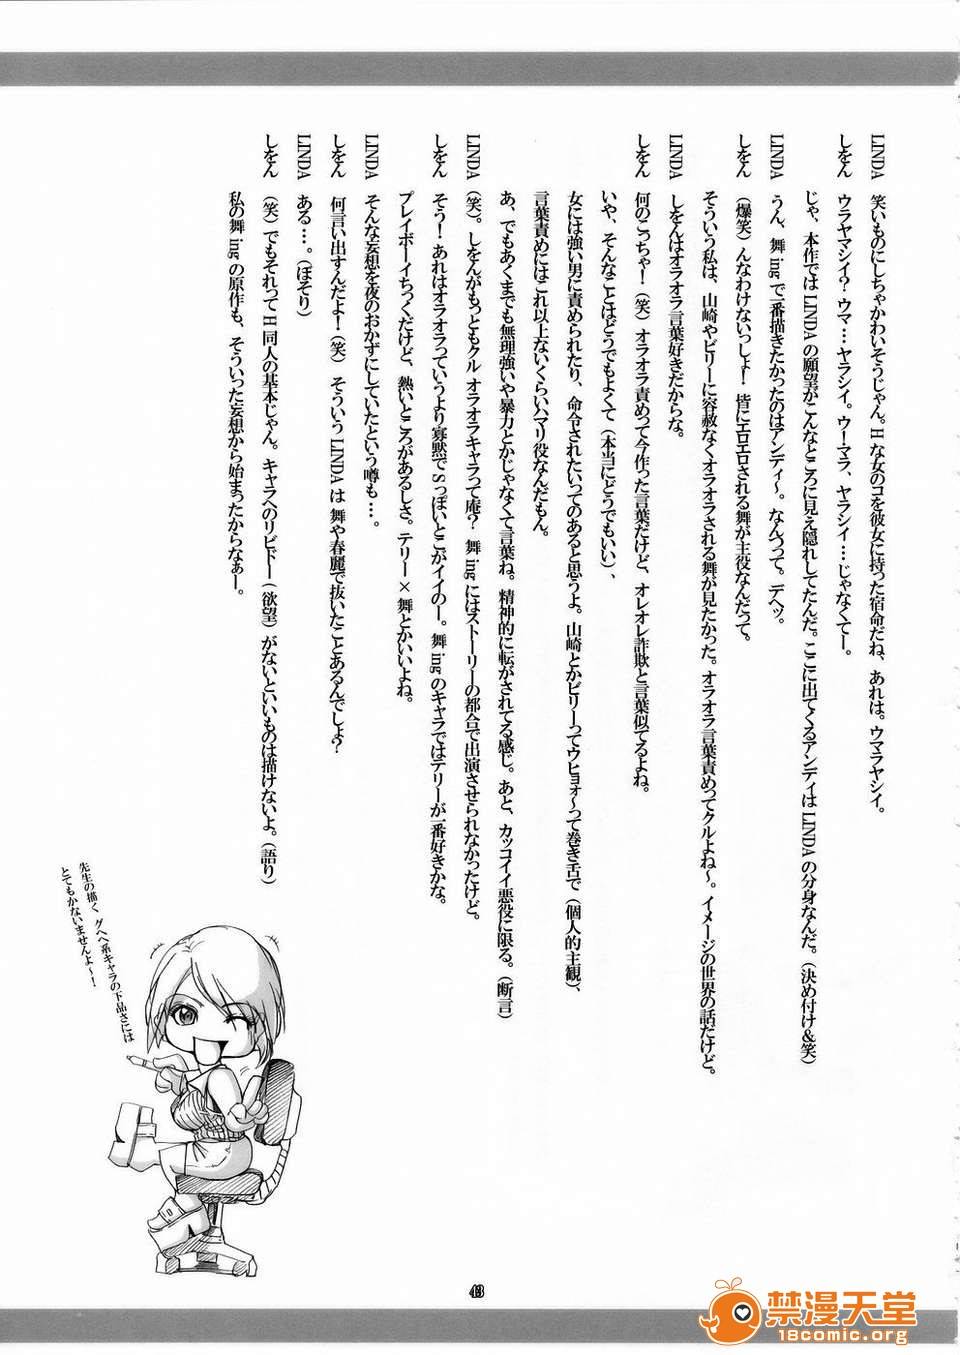 LINDA 笑いものにしちゃかわいそうじゃん。Hな女のコを彼女に持った宿命だね、あれは。ウマラヤシイ。
しをん ウラヤマシイ？ウマ…ヤラシイ。ウーマラ、ヤラシイ…じゃなくてー。
じゃ、本作ではLINDAの願望がこんなところに見え隠れしてたんだ。ここに出てくるアンディはLINDAの分身なんだ。（決め付け&笑）
LINDA うん、舞ingで一番描きたかったのはアンディ〜。なんつって。デヘッ。
しをん （爆笑）んなわけないっしょ！皆にエロエロされる舞が主役なんだって。
そういう私は、山崎やビリーに容赦なくオラオラされる舞が見たかった。オラオラ言葉責めってクルよね〜。イメージの世界の話だけど。
LINDA しをんはオラオラ言葉好きだからな。
しをん 何のこっちゃ！（笑）オラオラ責めって今作った言葉だけど、オレオレ詐欺と言葉似てるよね。
いや、そんなことはどうでもよくて（本当にどうでもいい）、
女には強い男に責められたり、命令されたいってのあると思うよ。山崎とかビリーってウヒョォ〜って巻き舌で（個人的主観）、
言葉責めにはこれ以上ないくらいハマリ役なんだもん。
あ、でもあくまでも無理強いや暴力とかじゃなくて言葉ね。精神的に転がされてる感じ。あと、カッコイイ悪役に限る。（断言）
LINDA （笑）。しをんがもっともクル オラオラキャラって庵？ 舞ingにはストーリーの都合で出演させられなかったけど。
しをん そう！あれはオラオラっていうより寡黙でSっぽいとこがイイのー。舞ingのキャラではテリーが一番好きかな。
プレイボーイちっくだけど、熱いところがあるしさ。テリー×舞とかいいよね。
LINDA そんな妄想を夜のおかずにしていたという噂も…。
しをん 何言い出すんだよ！（笑）そういうLINDAは舞や春麗で抜いたことあるんでしょ？
LINDA ある…。（ぼそり）
しをん （笑）でもそれってH同人の基本じゃん。キャラへのリビドー（欲望）がないといいものは描けないよ。（語り）
私の舞ingの原作も、そういった妄想から始まったからなぁー。
先生の描く、グヘヘ系キャラの下品さには
とてもかないませんよ〜！
禁漫天堂
18comic.org